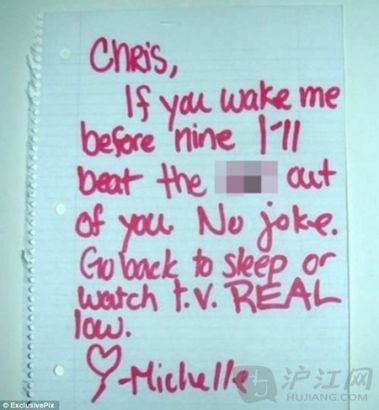 Chris,
If you wake me
before nine I'll
beat the out
of you. No joke.
Go back to sleep or
watch t.v. REAL
low.
-Michelle
沪江网
HUJIANG.COM
© ExclusivePix